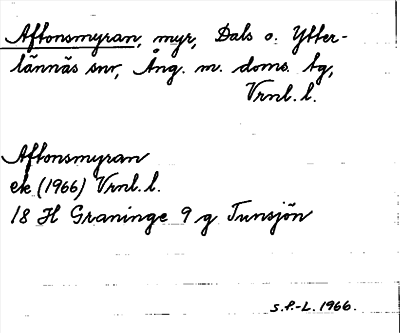 Aftonsmyran, myr, Dals o. Ytter-
lännäs snr, Ång. m. doms. tg,
Vrnl. l.
Aftonsmyran
ek (1966) Vrnl. l.
18 H Graninge 9 g Tunsjön
S.P.-L. 1966.